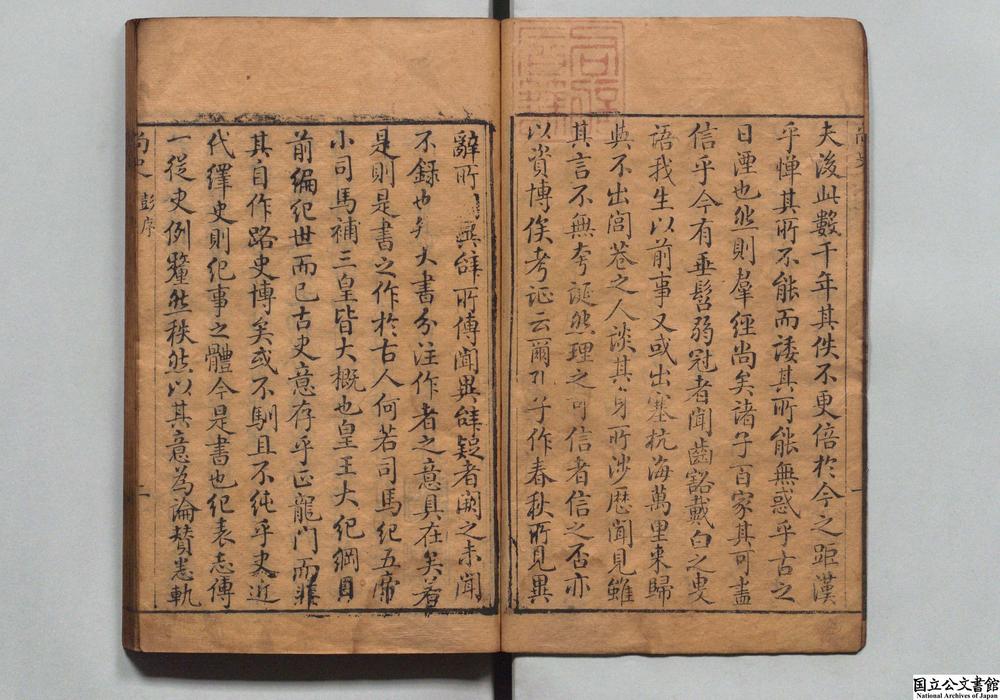 夫後此數千年其佚不更倍於今之距漢
乎憚其所不能而諉其所能無惑乎古之
日湮也然則羣經尚矣諸子百家其可盡
信乎今有垂髫弱冠者聞齒豁戴白之叟
語我生以前事又或出塞杭海萬里来歸
與不出閭巷之人談其身所涉歴聞見雖
其言不無夸誕然理之可信者信之否亦
以資博俟考証云爾孔子作春秋所見異
辭所聞異辭所傳聞異辭疑者闕之未聞
不録也矣大書分注作者之意具在矣若
是則是書之作於古人何若司馬紀五帝
小司馬補三皇皆大概也皇王大紀綱目
前編紀世而已古史意存乎正龍門而非
其自作路史博矣或不馴且不純乎史近
代繹史則紀事之體今是書也紀表志傳
一從史例釐然秩然以其意為論贊悉軌
尚史 彭序 一
国立公文書館
National Archives of Japan